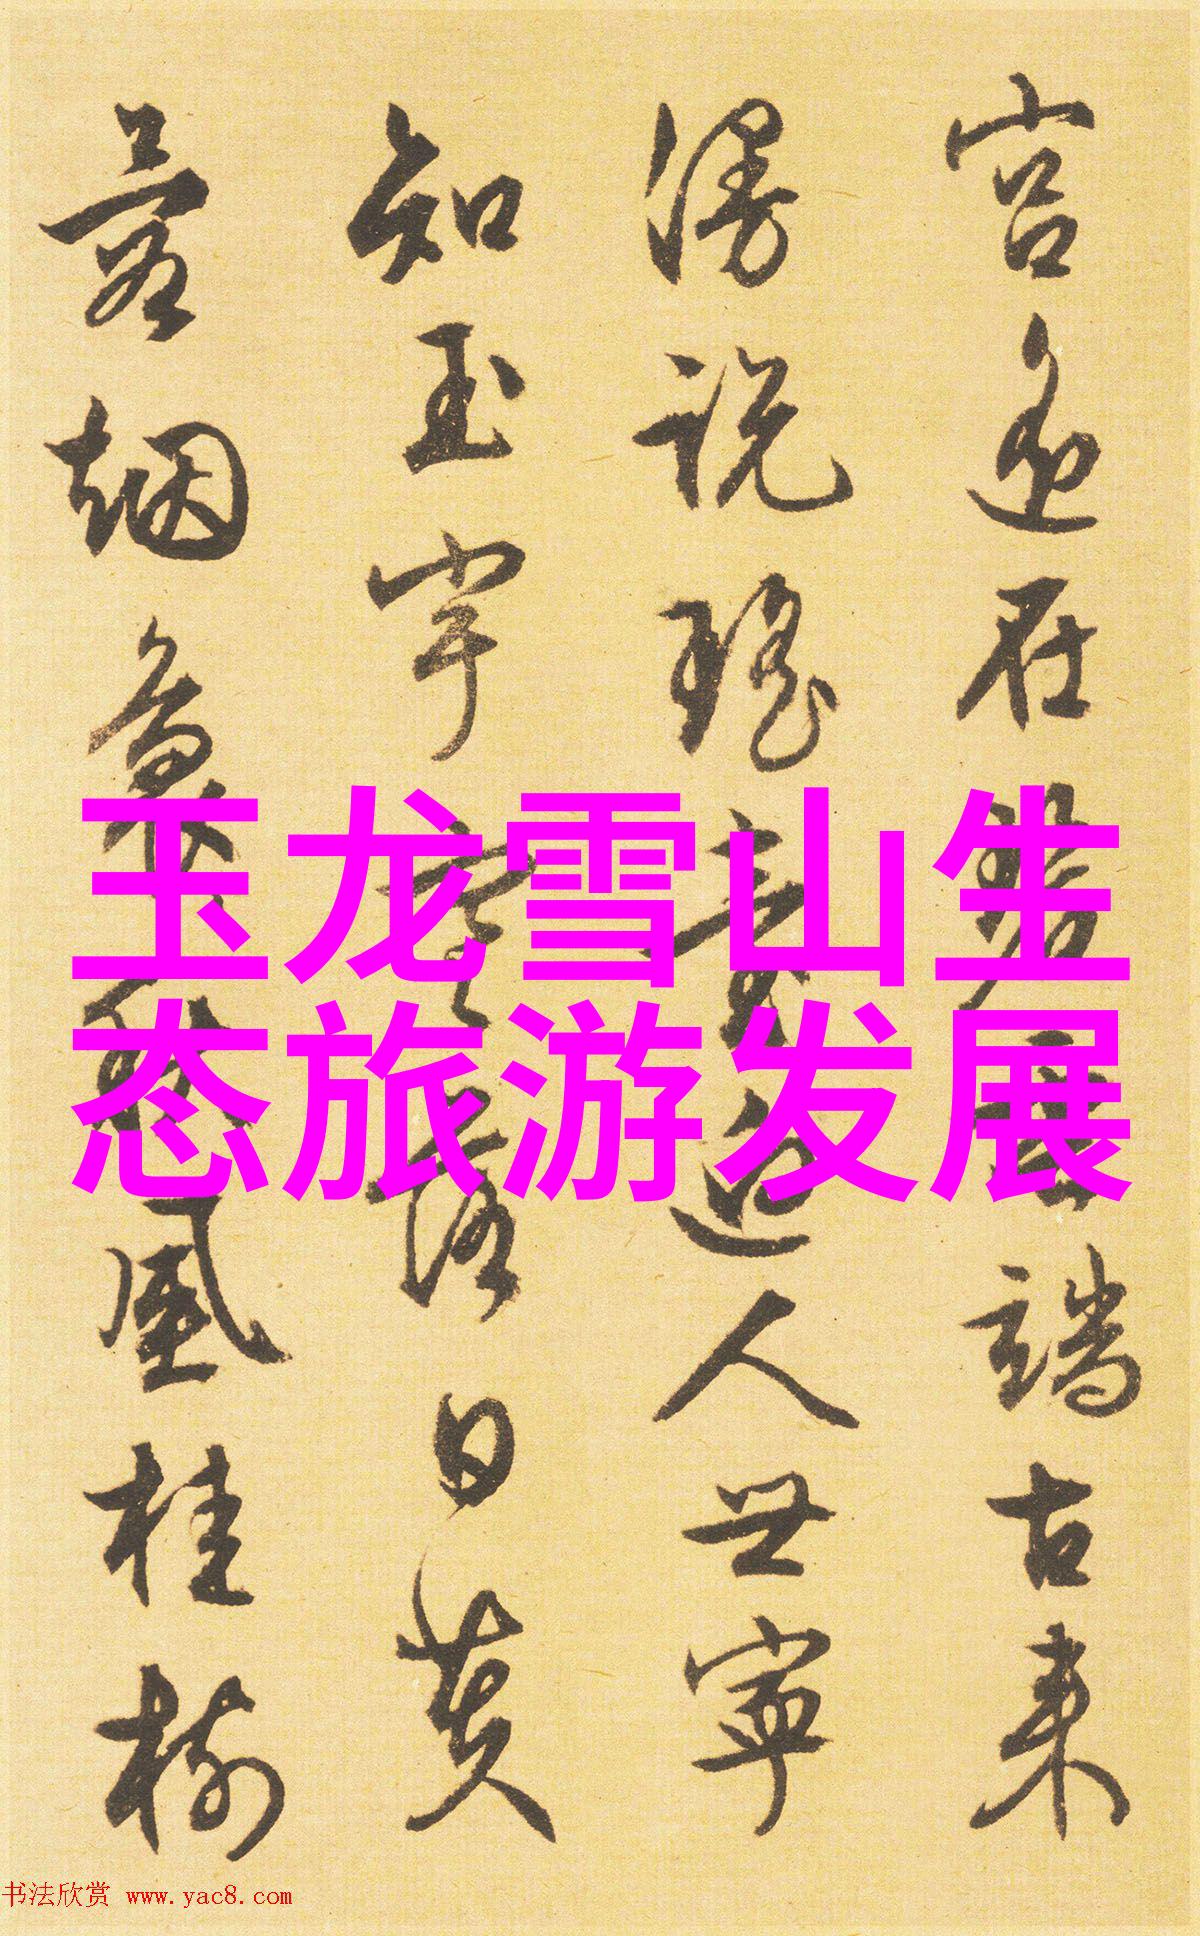 玉龙雪山生
态旅游发展
宫在端古来
漫说瑶人世宁
知玉宇落日黄
烟风桂树
书法欣赏 www.yac8.com